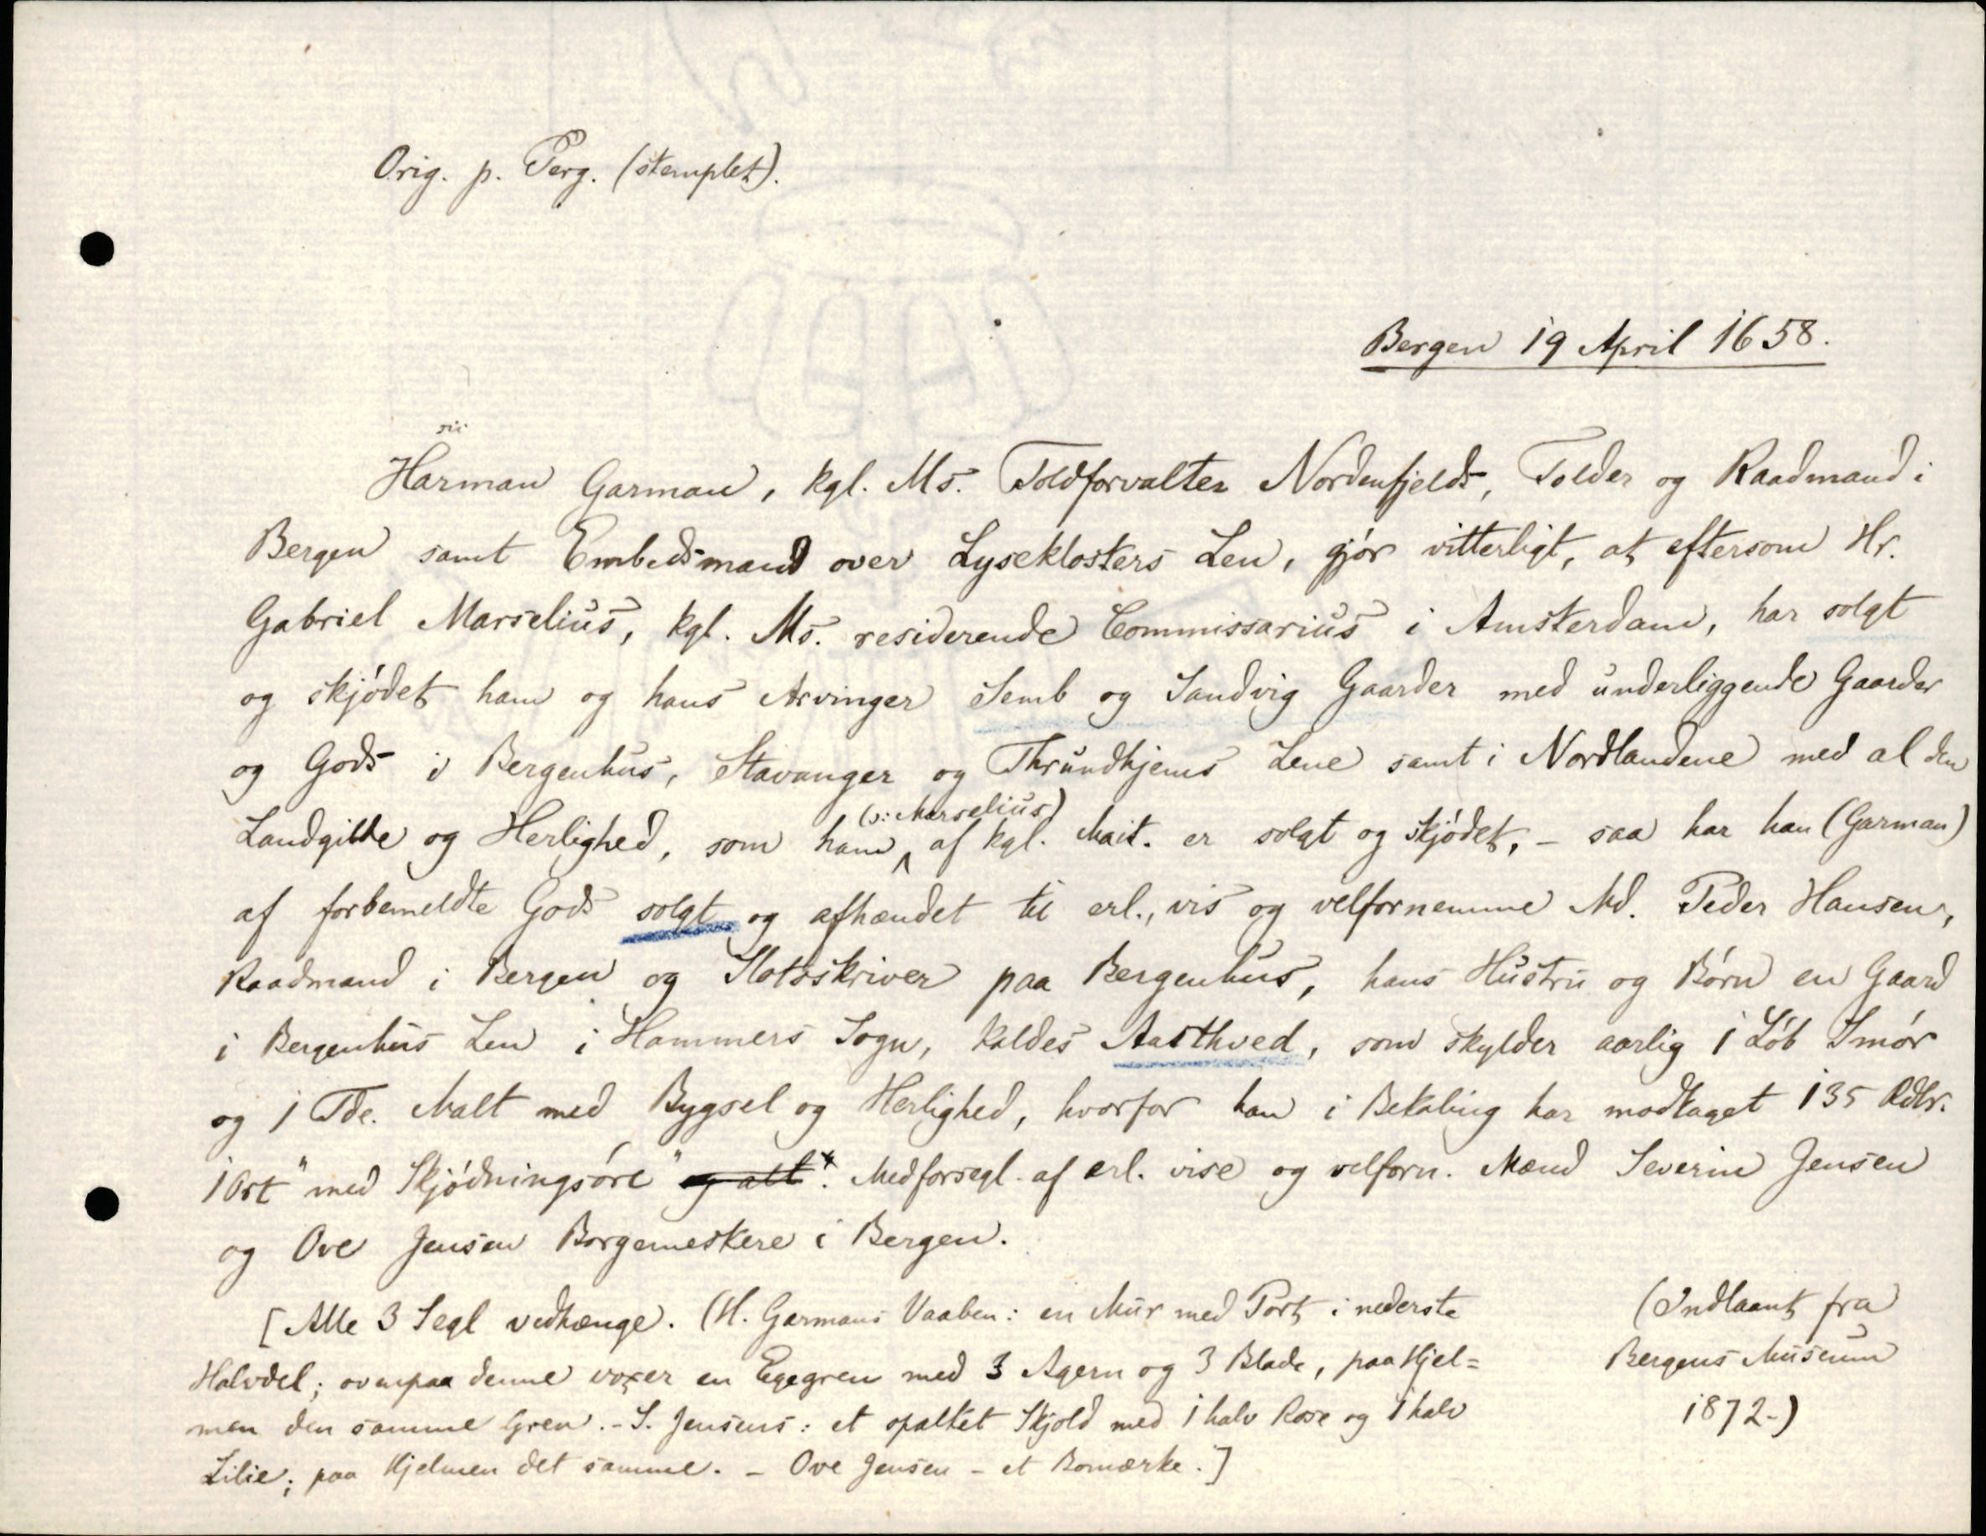 Orig. p. Perg. (stemplet).
Bergen 19 April 1658.
sic
Harman Garman, kgl. Ms. Toldforvalter Nordenfjelds, Tolder og Raadmand i
Bergen samt Embedsmand over Lyseklosters Len, gjør vitterligt, at eftersom Hr.
Gabriel Marselius, kgl. Ms. residerende Commissarius i Amsterdam, har solgt
og skjødet ham og hans Arvinger Semb og Sandvig Gaarder med underliggende Gaarder
og Gods i Bergenhus, Stavanger og Thrundhjems Lene samt i Nordlandene med al den
(ɔ: Marselius)
Landgilde og Herlighed, som ham ^ af kgl. Mait. er solgt og skjødet, - saa har han (Garman)
af forbemeldte Gods solgt og afhændet til erl., vis og velfornemme Md. Peder Hansen,
Raadmand i Bergen og Slotsskriver paa Bergenhus, hans Hustru og Børn en Gaard
i Bergenhus Len i Hammers Sogn, kaldes Aasthved, som skylder aarlig 1 Løb Smør
og 1 Tde. Malt med Bygsel og Herlighed, hvorfor han i Betaling har modtaget 135 Rdlr.
1 Ort "med Skjødningsøre" og alt. Medforsegl. af erl. vise og velforn. Mænd Severin Jensen
og Ove Jensen Borgemestere i Bergen.
[Alle 3 Segl vedhænge. (H. Garmans Vaaben: en Mur med Port i nederste
Halvdel; ovenpaa denne voxer en Egegren med 3 Agern og 3 Blade, paa Hjel=
men den samme Gren. - S. Jensens: et spaltet Skjold med 1 halv Rose og 1 halv
Lilie; paa Hjelmen det samme. - Ove Jensen - et Bomærke.]
(Indlaant fra
Bergens Museum
1872-)